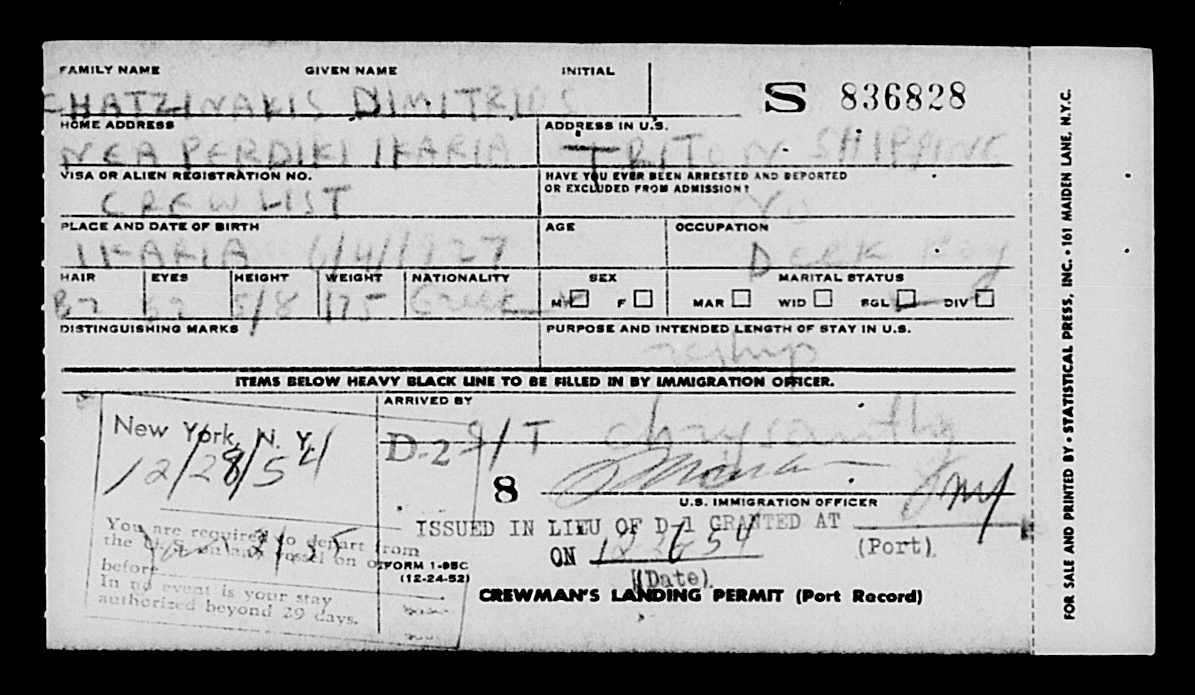 FAMILY NAME GIVEN NAME INITIAL
CHATZINAKIS DIMITRIOS
S 836828
HOME ADDRESS ADDRESS IN U.S.
NEA PERDIKI IKARIA TRITON SHIPPING
VISA OR ALIEN REGISTRATION NO. HAVE YOU EVER BEEN ARRESTED AND DEPORTED
OR EXCLUDED FROM ADMISSION?
CREW LIST No
PLACE AND DATE OF BIRTH AGE OCCUPATION
IKARIA 6/4/1927 Deck Boy
HAIR EYES HEIGHT WEIGHT NATIONALITY SEX MARITAL STATUS
Bz bz 5/8 175 Greek M F MAR WID SGL DIV
DISTINGUISHING MARKS PURPOSE AND INTENDED LENGTH OF STAY IN U.S.
reship
ITEMS BELOW HEAVY BLACK LINE TO BE FILLED IN BY IMMIGRATION OFFICER.
ARRIVED BY
New York, N. Y.
D-2 S/T Chrysanthy
12/28/54
8
U.S. IMMIGRATION OFFICER
ISSUED IN LIEU OF D-1 GRANTED AT
(Port)
ON 12 26 54
(Date)
You are required to depart from
the U.S. on any vessel on or
before
In no event is your stay
authorized beyond 29 days.
FORM I-95C
(12-24-52)
CREWMAN'S LANDING PERMIT (Port Record)
FOR SALE AND PRINTED BY • STATISTICAL PRESS, INC. • 161 MAIDEN LANE, N.Y.C.